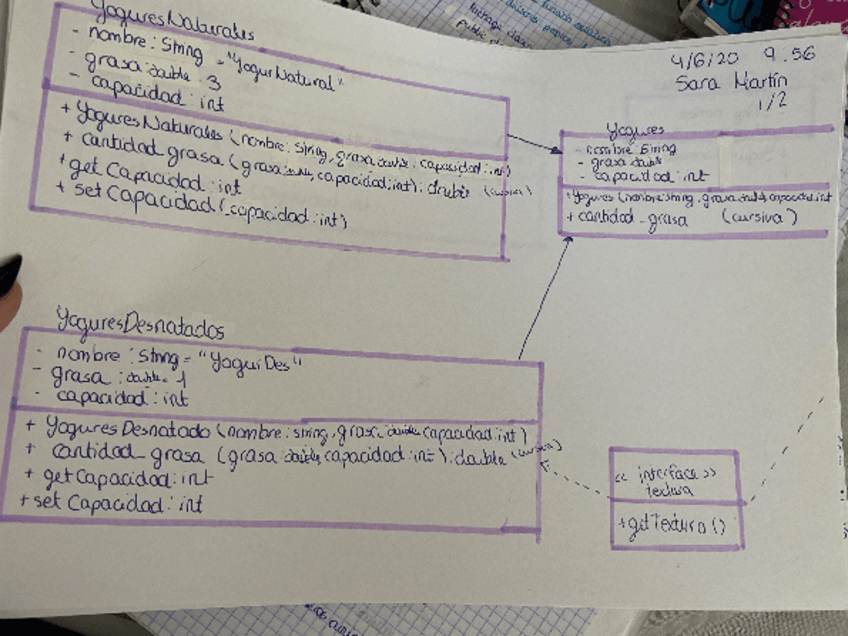 YoguresNaturales
- nombre: String = "YogurNatural"
- grasa: double = 3
- capacidad: int
+ YoguresNaturales (nombre: string, grasa: double, capacidad: int)
+ cantidad grasa (grasa: double, capacidad: int): double (cursiva)
+ get Capacidad: int
+ set Capacidad (_capacidad: int)
4/6/20 9:56
Sara Martín
1/2
Yogures
- nombre String
- grasa double
- capacidad: int
+ Yogures (nombre: string, grasa: double, capacidad: int
+ cantidad_grasa (cursiva)
YoguresDesnatados
- nombre: String = "YoguiDes"
- grasa: double = 1
- capacidad: int
+ YoguresDesnatado (nombre: string, grasa: double, capacidad: int)
+ cantidad_grasa (grasa: double, capacidad: int): double (cursiva)
+ getCapacidad: int
+ set Capacidad: int
<< interface >>
textura
+getTextura ()
package
public